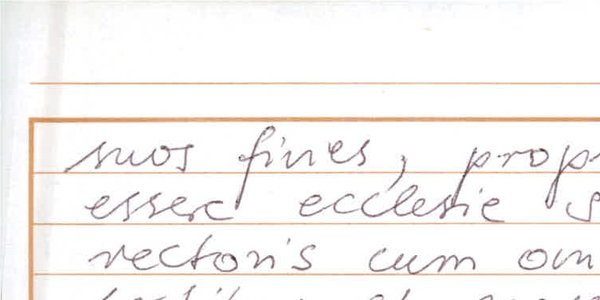 suos fines, prop
esset ecclesie s
rectoris cum om